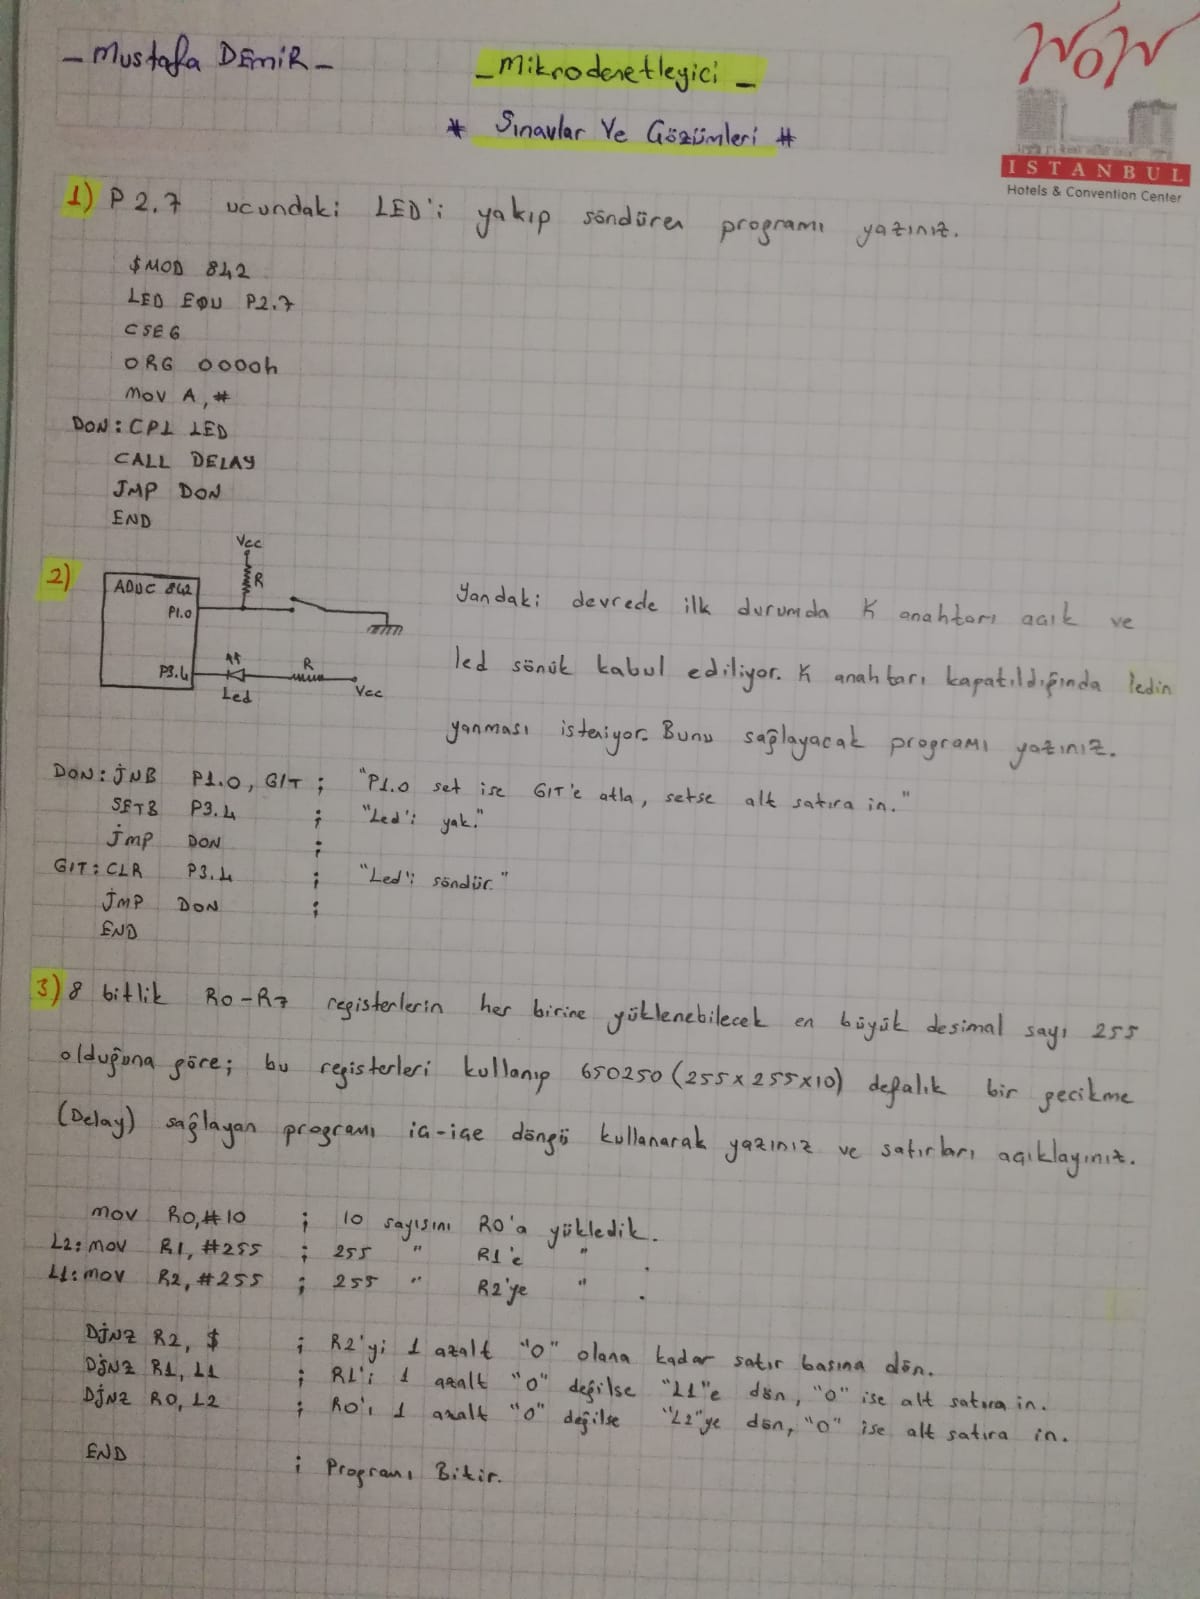 - Mustafa DEMİR -
WOW
ISTANBUL
Hotels & Convention Center
- Mikrodenetleyici -
* Sınavlar Ve Çözümleri #
1) P2.7 ucundaki LED'i yakıp söndüren programı yazınız.
$MOD 842
LED EQU P2.7
CSEG
ORG 0000h
MOV A,#
DON: CPL LED
CALL DELAY
JMP DON
END
2) Vcc
R
ADUC 842
P1.0
P3.4
Led
R
Vcc
Yandaki devrede ilk durumda K anahtarı açık ve
led sönük kabul ediliyor. K anahtarı kapatıldığında ledin
yanması isteniyor. Bunu sağlayacak programı yazınız.
DON: JNB P1.0, GIT ; "P1.0 set ise GIT'e atla, setse alt satıra in."
SETB P3.4 ; "Led'i yak."
jmp DON ;
GIT: CLR P3.4 ; "Led'i söndür."
JMP DON ;
END
3) 8 bitlik R0-R7 registerlerin her birine yüklenebilecek en büyük desimal sayı 255
olduğuna göre; bu registerleri kullanıp 650250 (255x255x10) defalık bir gecikme
(Delay) sağlayan programı iç-içe döngü kullanarak yazınız ve satırları açıklayınız.
mov R0,#10 ; 10 sayısını R0'a yükledik.
L2: mov R1, #255 ; 255 " R1'e " .
L1: mov R2, #255 ; 255 " R2'ye " .
DJNZ R2, $ ; R2'yi 1 azalt "0" olana kadar satır başına dön.
DJNZ R1, L1 ; R1'i 1 azalt "0" değilse "L1"e dön, "0" ise alt satıra in.
DJNZ R0, L2 ; R0'ı 1 azalt "0" değilse "L2"ye dön, "0" ise alt satıra in.
END ; Programı Bitir.